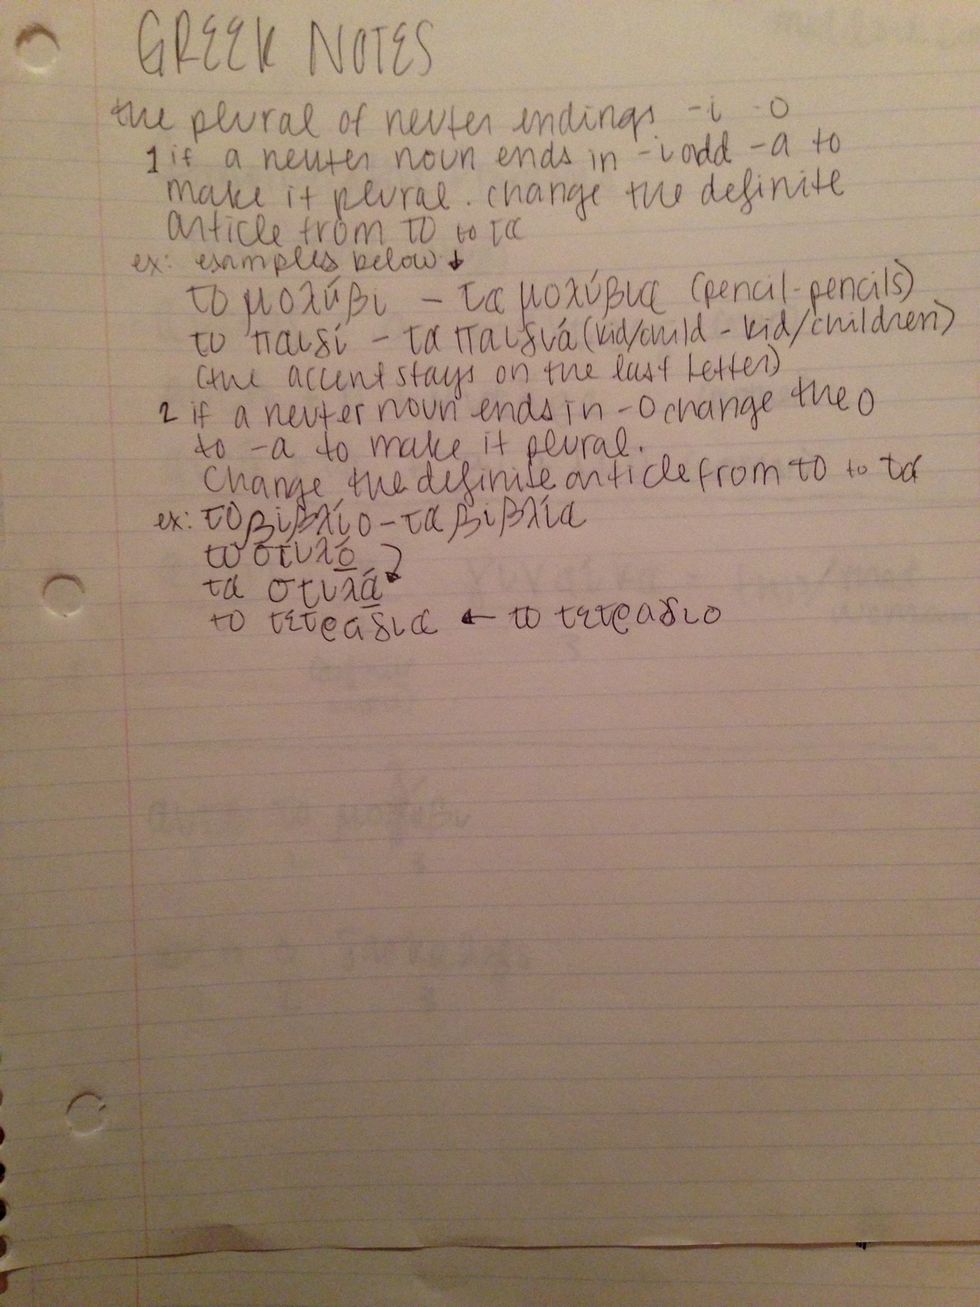 GREEK NOTES
the plural of neuter endings -i -o
1 if a neuter noun ends in -ι add -a to
make it plural. change the definite
article from το to τα
ex: examples below ↓
το μολύβι - τα μολύβια (pencil-pencils)
το παιδί - τα παιδιά (kid/child - kid/children)
(the accent stays on the last letter)
2 if a neuter noun ends in -o change the o
to -a to make it plural.
Change the definite article from το to τα
ex: το βιβλίο - τα βιβλία
το στυλό
τα στυλά
το τετραδια ← το τετραδιο